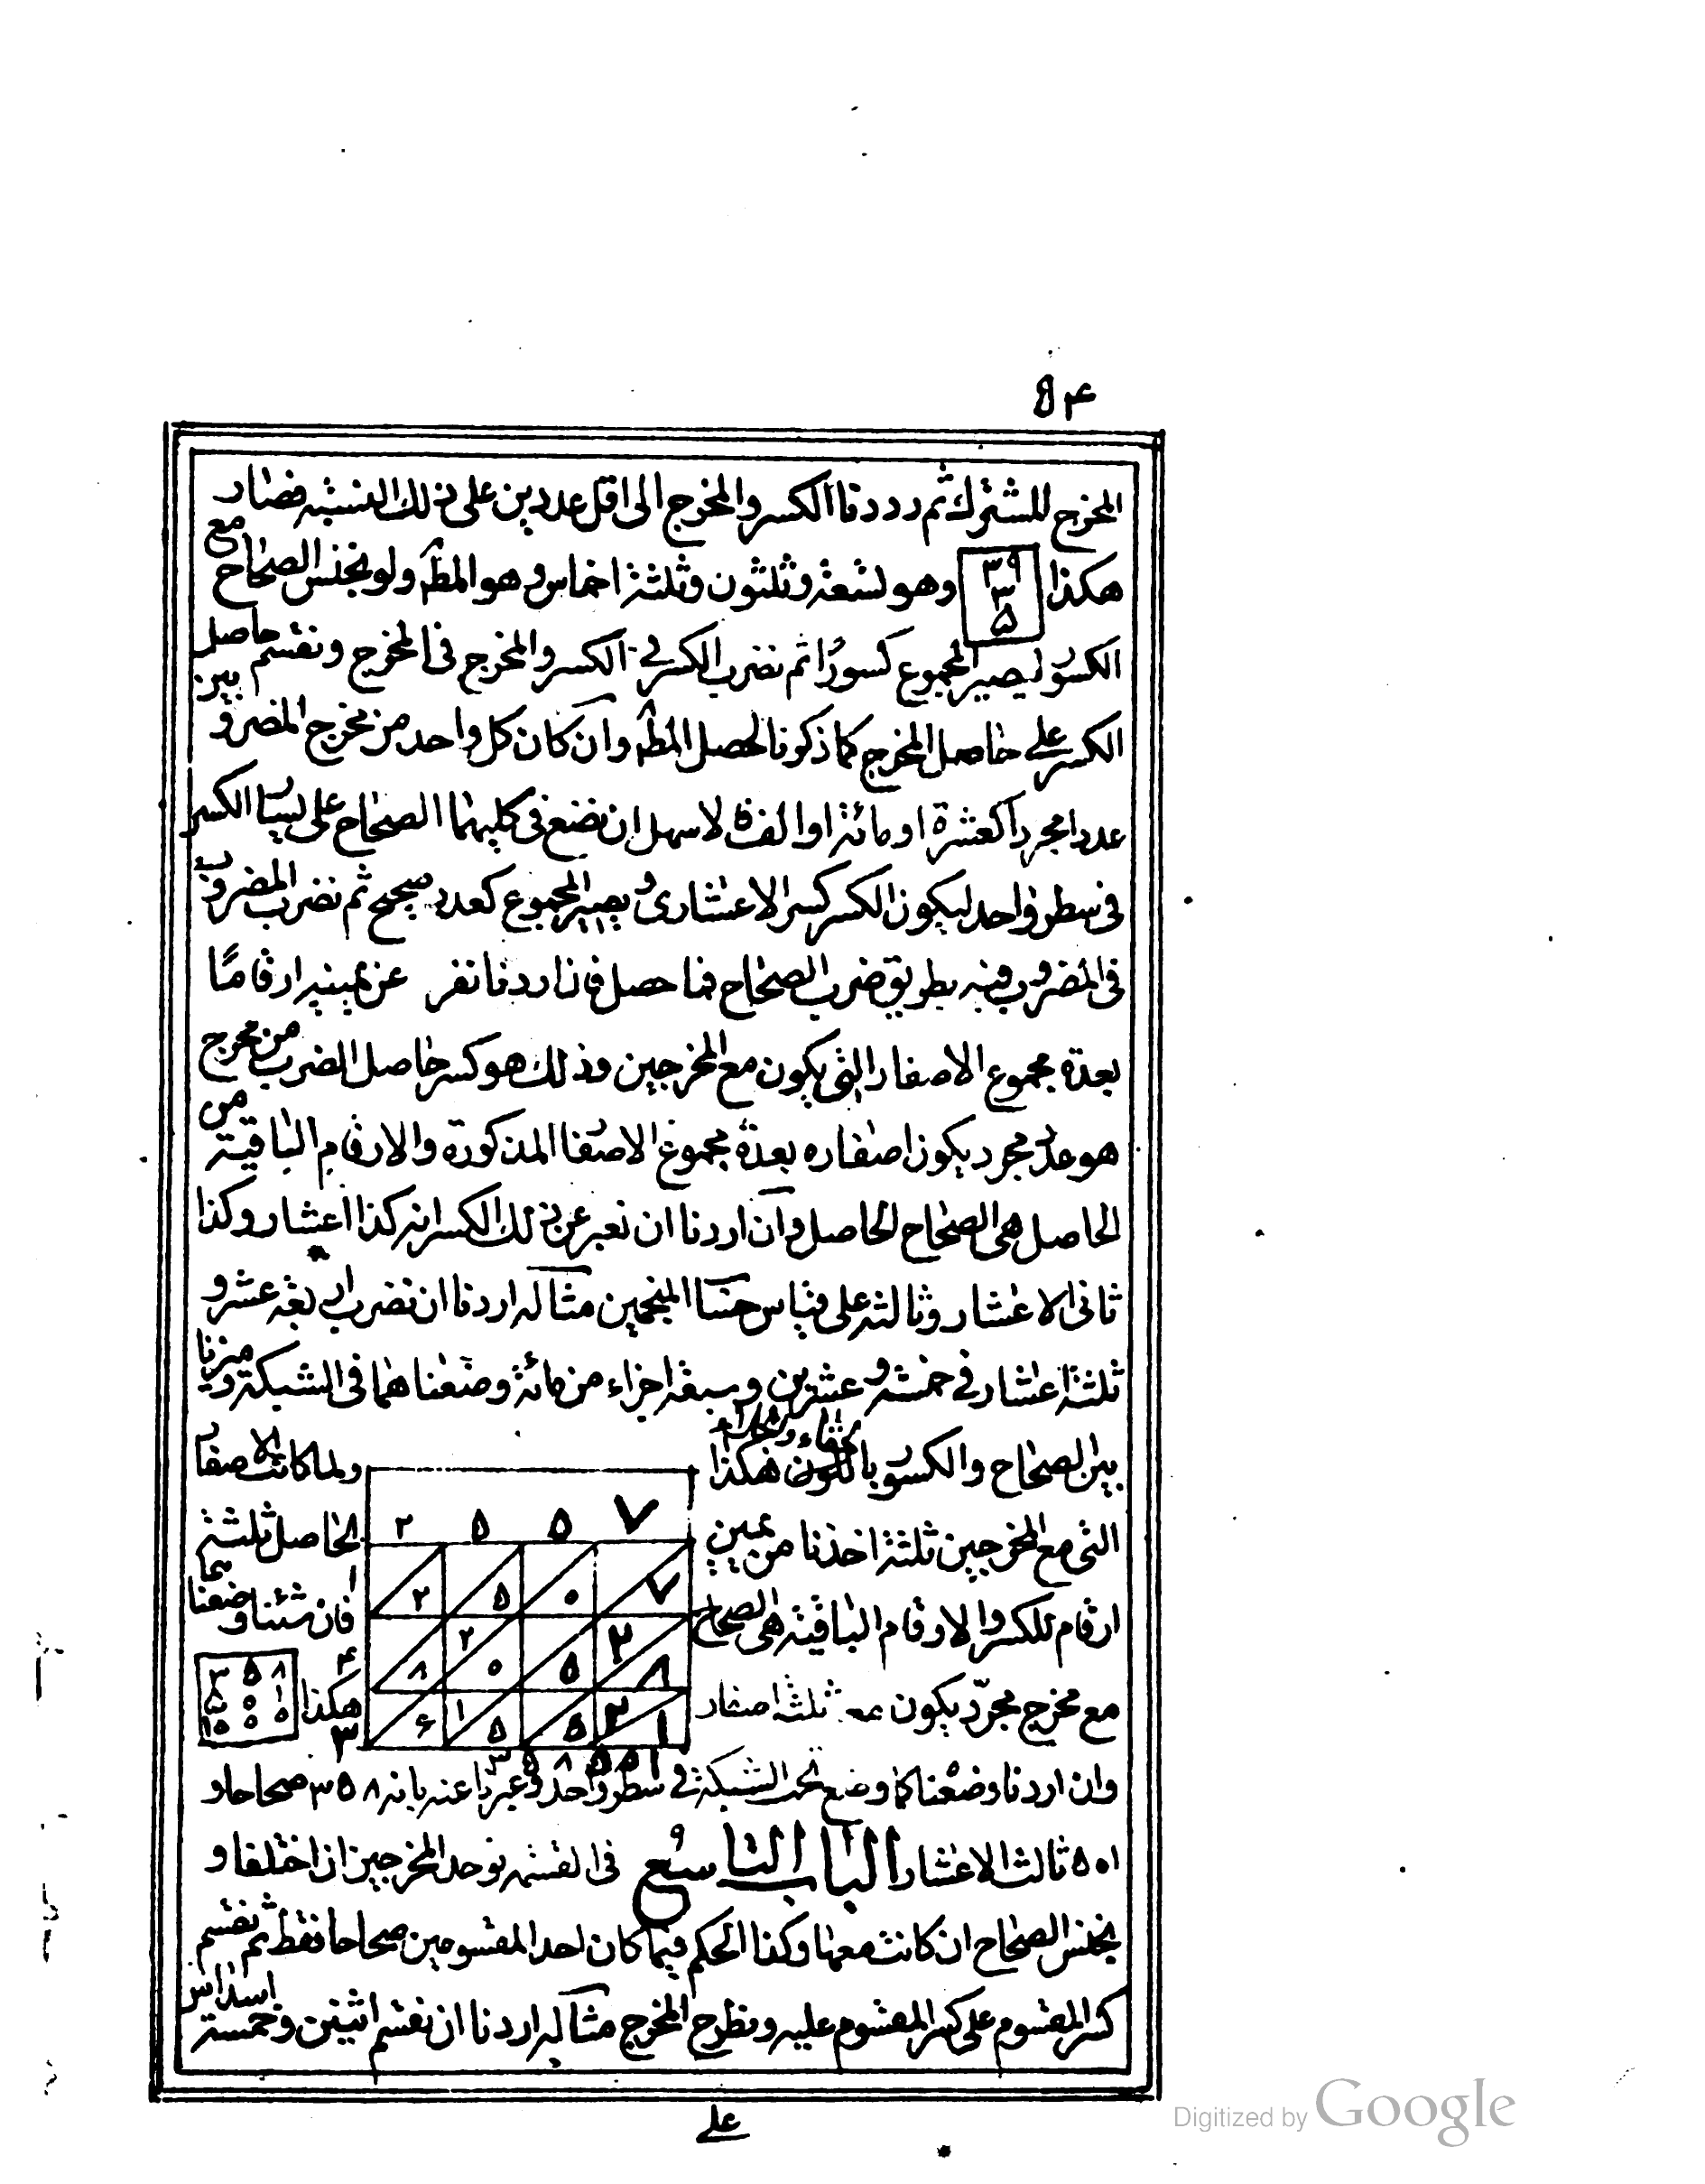 ٥٤
المخرج المشترك ثم رددنا الكسر والمخرج الى اقل عددين على ذلك النسبة فصار
هكذا ٣٩ ٣ ٥ وهو تسعة وثلثون وثلثة اخماس وهو المطـ ولو نجنس الصحاح مع
الكسور ليصير المجموع كسورًا ثم نضرب الكسر فى الكسر والمخرج فى المخرج ونقسم حاصل
الكسر على حاصل المخرج كما ذكرنا لحصل المطـ وان كان كل واحد من مخرج المضروبين
عددا مجرداً كعشرة او مائة او الف فالاسهل ان نضع فى كليهما الصحاح على يسار الكسر
فى سطر واحد ليكون الكسر كسر الاعشارى ويصير المجموع كعدد صحيح ثم نضرب المضروب
فى المضروب فيه بطريق ضرب الصحاح فما حصل فاذا اردنا نفر عن يمينه ارقامًا
بعدة مجموع الاصفار التى يكون مع المخرجين وذلك هو كسر حاصل الضرب من مخرج
هو عدد مجرد يكون اصفاره بعدة مجموع الاصفار المذكورة والارقام الباقية من
الحاصل هى الصحاح الحاصل وان اردنا ان نعبر عن ذلك الكسر انه كذا اعشار وكذا
ثانى الاعشار وثالثه على قياس حساب المنجمين مثاله اردنا ان نضرب اربعة عشر و
ثلثة اعشار فى خمسة وعشرين وسبعة اجزاء من مائة وضعناهما فى الشبكة وميزنا
بين الصحاح والكسور هكذا ولما كانت الاصفار
التى مع المخرجين ثلثة اخذنا من يمين الحاصل ثلثة
ارقام للكسر والارقام الباقية هى الصحاح فان شئنا وضعناها
مع مخرج مجرّد يكون معه ثلثة اصفار هكذا
٣٥٨
٥٠١
١٠٠٠
٢ ٥ ٠ ٧
١ ٢ ٥ ٠ ٧
٤ ٨ ٢ ٠ ٥ ٢ ٨
٣ ٦ ١ ٥ ٥ ٢ ١
٣ ٥ ٨ ٥ ٠ ١
وان اردنا وضعناه كما وضع تحت الشبكة فى سطر واحد وعبرنا عنه بانه ٣٥٨ صحاحا و
٥٠١ ثالث الاعشار الباب التاسع فى القسمة نوحد المخرجين اذا اختلفا و
نجنس الصحاح ان كانت معها وكذا الحكم فيما كان احد المقسومين صحاحا فقط ثم نقسم
كسر المقسوم على كسر المقسوم عليه ونطرح المخرج مثاله اردنا ان نقسم اثنين وخمسة اسداس
على
Digitized by Google